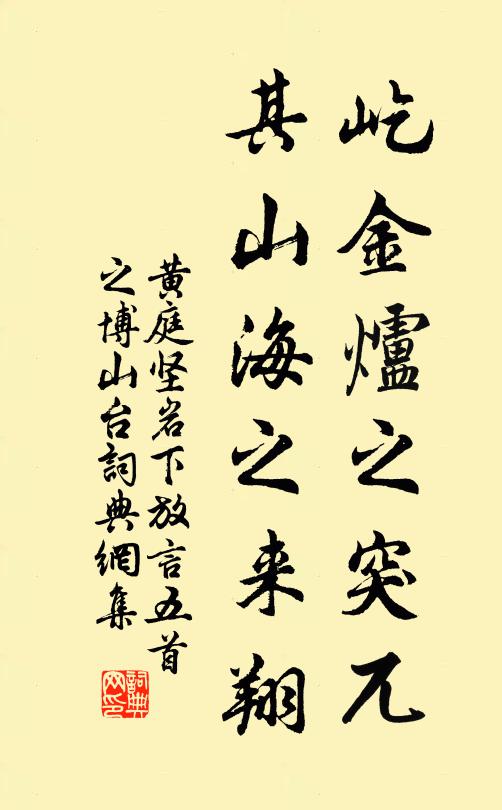 屹金爐之突兀
其山海之来翔
黄庭坚岩下放言五首
之博山台詞典網集
詞典网印